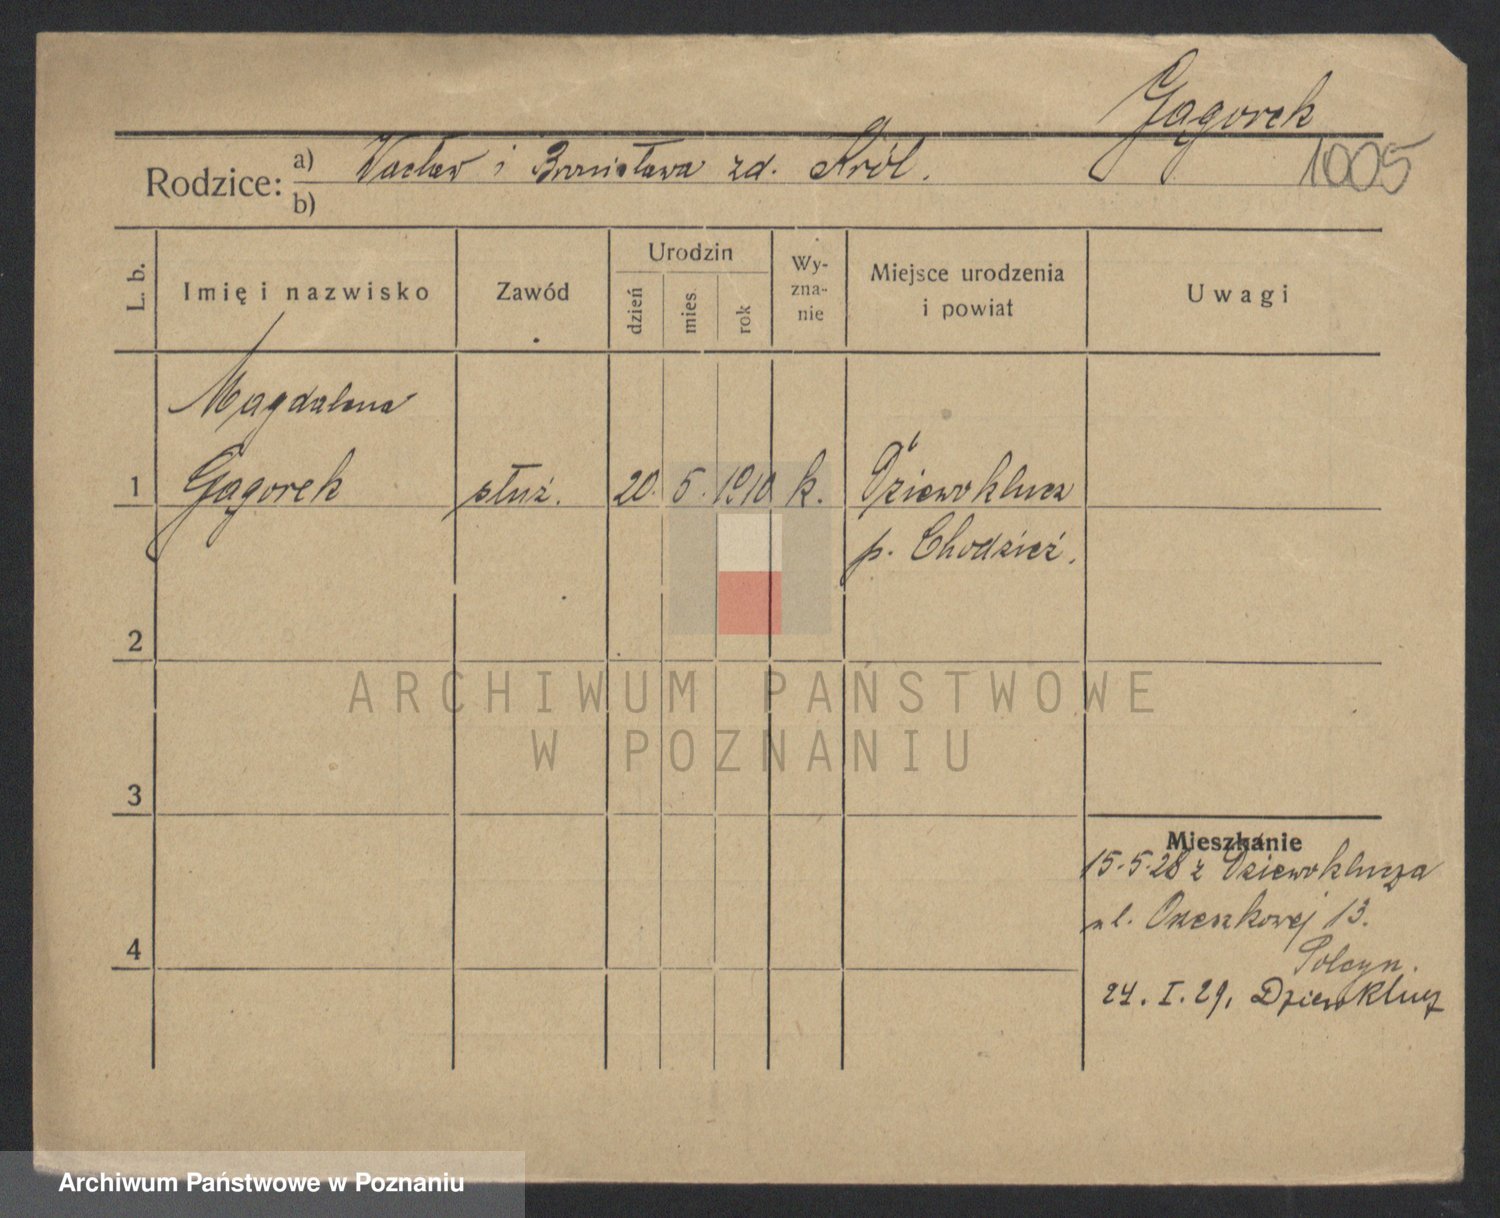 Gągorek
1005
Rodzice: a) Wacław i Bronisława zd. Król.
b)
L. b.
Imię i nazwisko
Zawód
Urodzin
dzień
mies.
rok
Wy-
zna-
nie
Miejsce urodzenia
i powiat
Uwagi
Magdalena
1 Gągorek służ. 20. 5. 1910 k. Dziewoklucz
p. Chodzież.
2
ARCHIWUM PAŃSTWOWE
W POZNANIU
3
Mieszkanie
15.5.28 z Dziewoklucza
ul. Orzeszkowej 13.
4
24. I. 29, Dziewoklucz
Archiwum Państwowe w Poznaniu